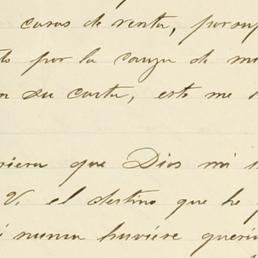 casas de renta, por su
por la
su carta, esto me
que Dios mi
V. el destino que he
nunca huviére queri